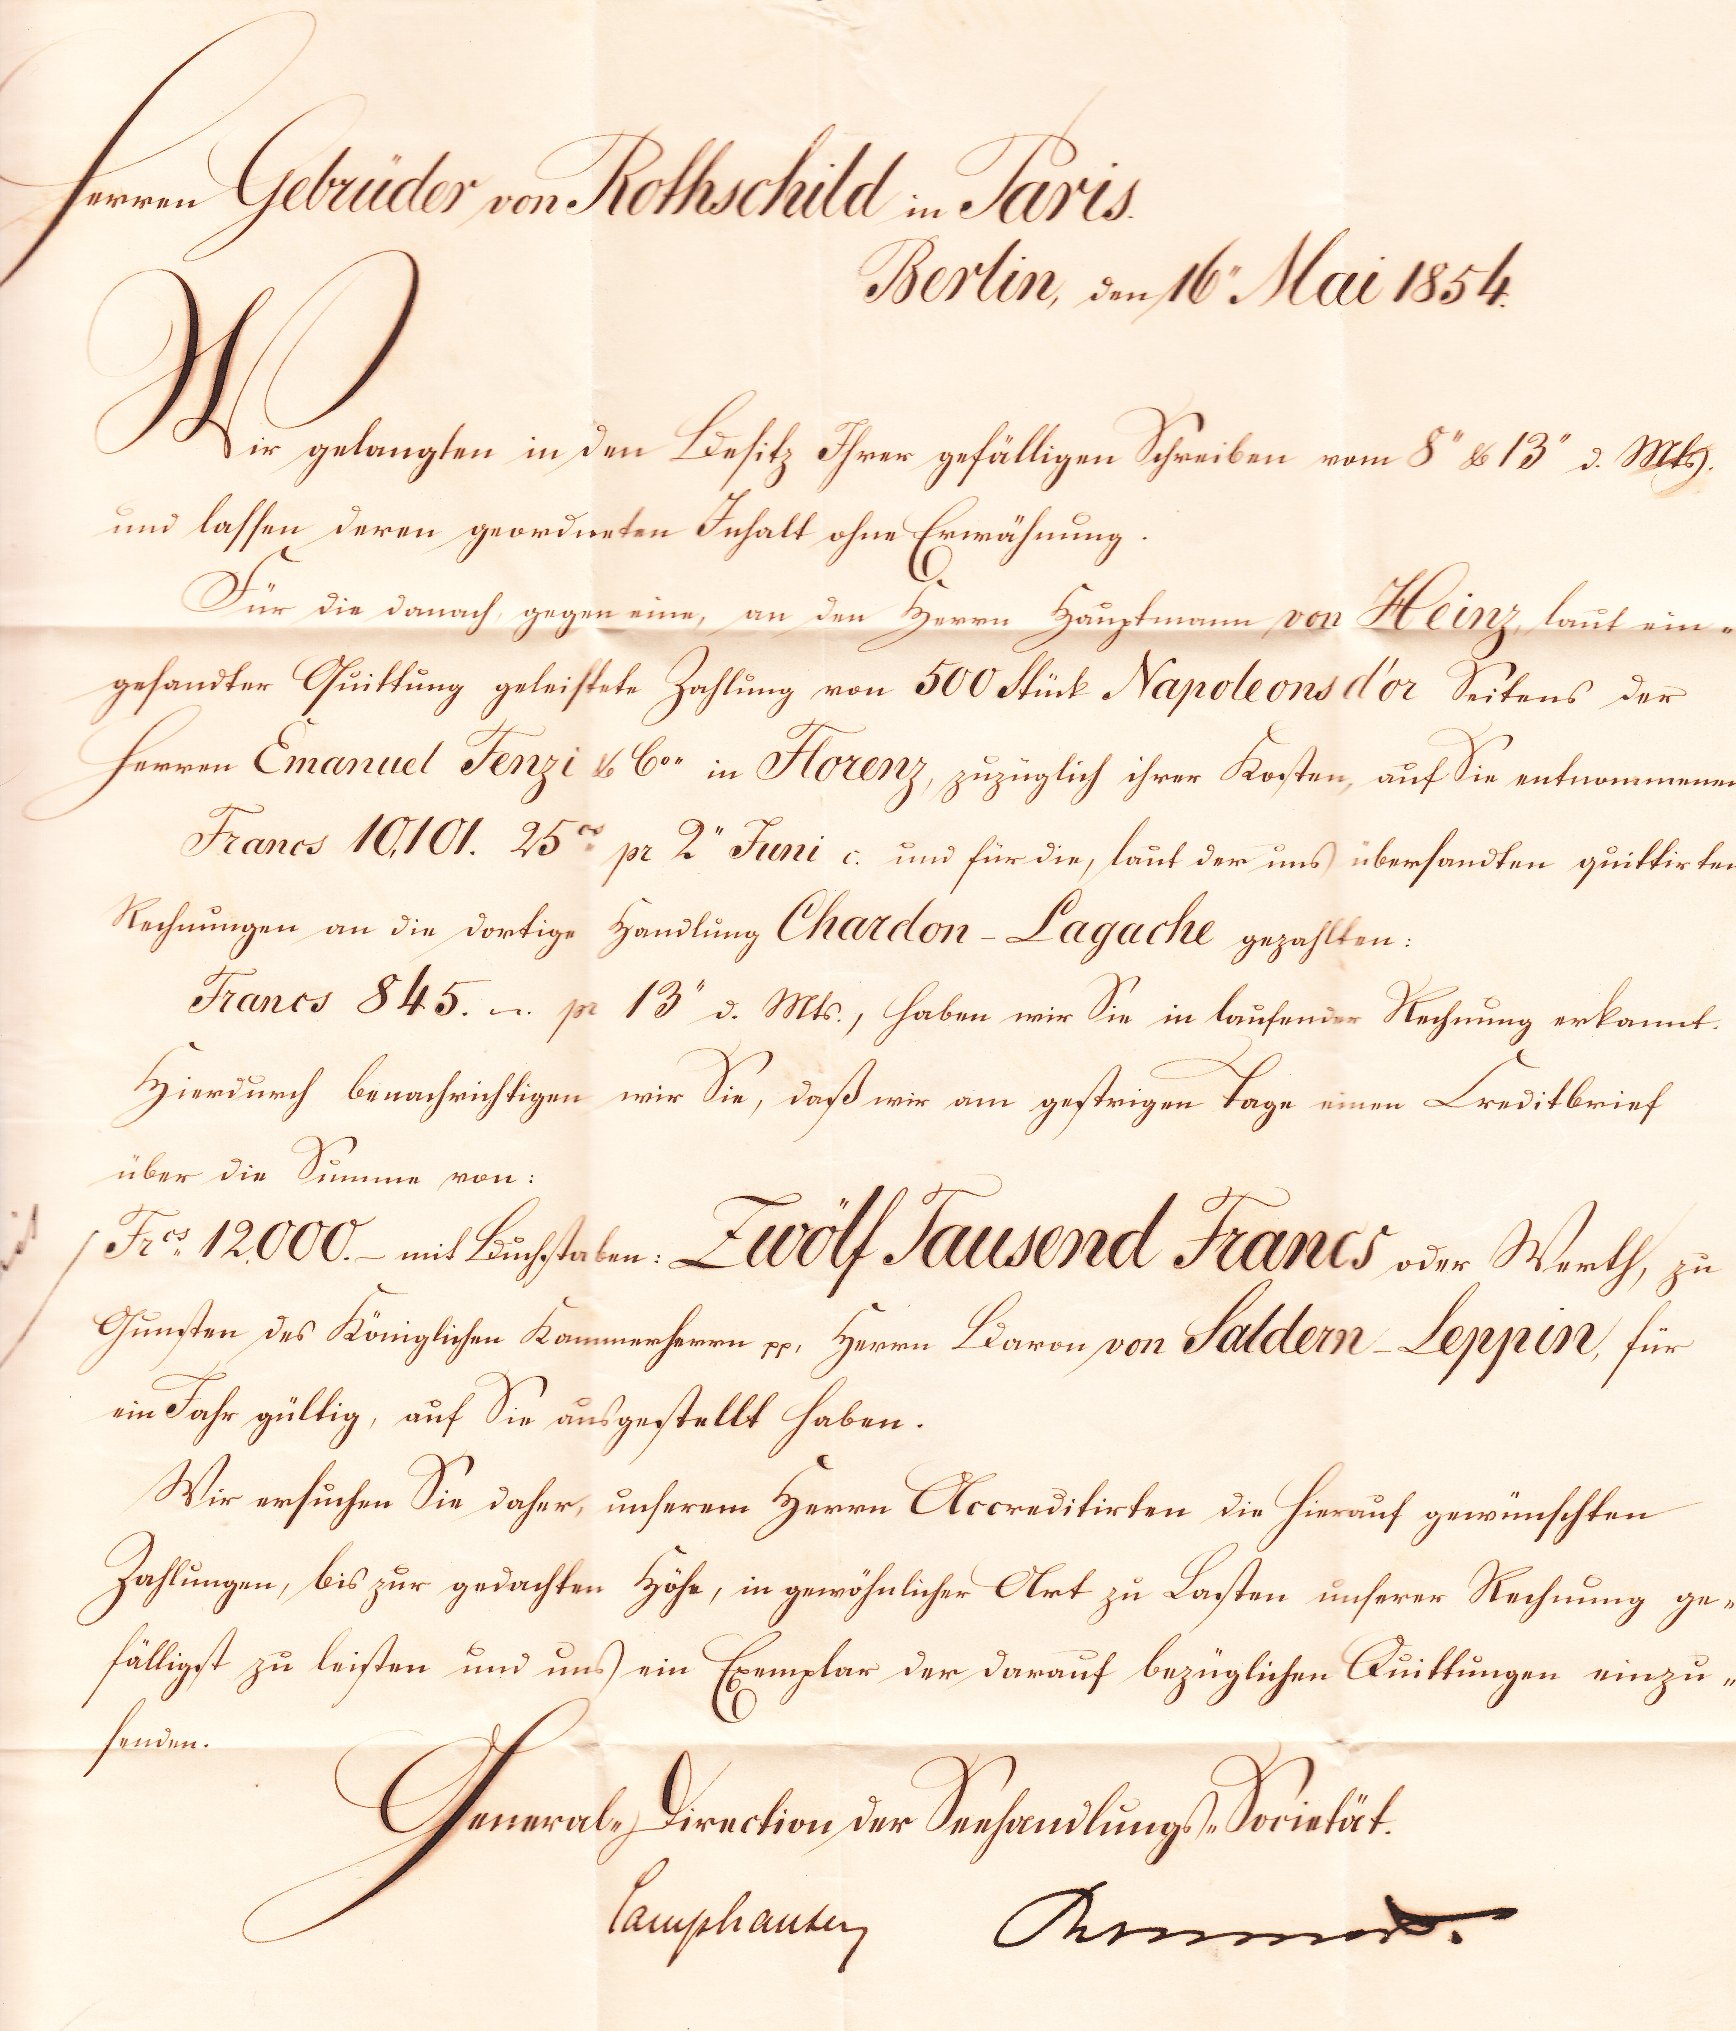 Herren Gebrüder von Rothschild in Paris.
Berlin, den 16" Mai 1854.
Wir gelangten in den Besitz Ihrer gefälligen Schreiben vom 8" & 13" d. Mts.
und lassen deren geordneten Inhalt ohne Erwähnung.
Für die danach, gegen eine, an den Herrn Hauptmann von Heinz, laut ein-
gesandter Quittung geleistete Zahlung von 500 Stück Napoleons d'or Seitens der
Herren Emanuel Fenzi & Co" in Florenz, zuzüglich ihrer Kosten, auf Sie entnommenen
Francs 10,101. 25cs pr 2" Juni c. und für die, laut der uns übersandten quittirten
Rechnungen an die dortige Handlung Chardon-Lagache gezahlten:
Francs 845. –. pr 13" d. Mts., haben wir Sie in laufender Rechnung erkannt.
Hierdurch benachrichtigen wir Sie, daß wir am gestrigen Tage einen Creditbrief
über die Summe von:
Frcs. 12,000.– mit Buchstaben: Zwölf Tausend Francs oder Werth, zu
Gunsten des Königlichen Kammerherrn pp, Herrn Baron von Saldern-Leppin, für
ein Jahr gültig, auf Sie ausgestellt haben.
Wir ersuchen Sie daher, unserem Herrn Accreditirten die hierauf gewünschten
Zahlungen, bis zur gedachten Höhe, in gewöhnlicher Art zu Lasten unserer Rechnung ge-
fälligst zu leisten und uns ein Exemplar der darauf bezüglichen Quittungen einzu-
senden.
General-Direction der Seehandlungs-Societät.
Camphausen